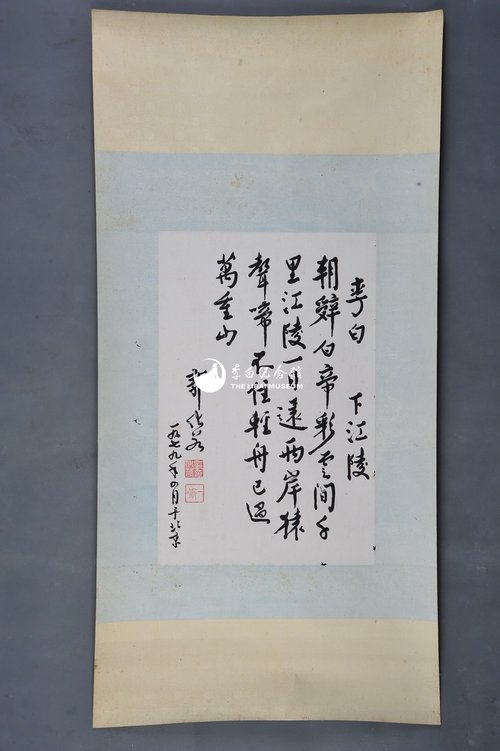 李白 下江陵
朝辭白帝彩雲間千
里江陵一日還两岸猿
聲啼不住輕舟已過
萬重山
郭化若
一九七九年四月于北京
李白纪念馆
THE LIBAI MUSEUM